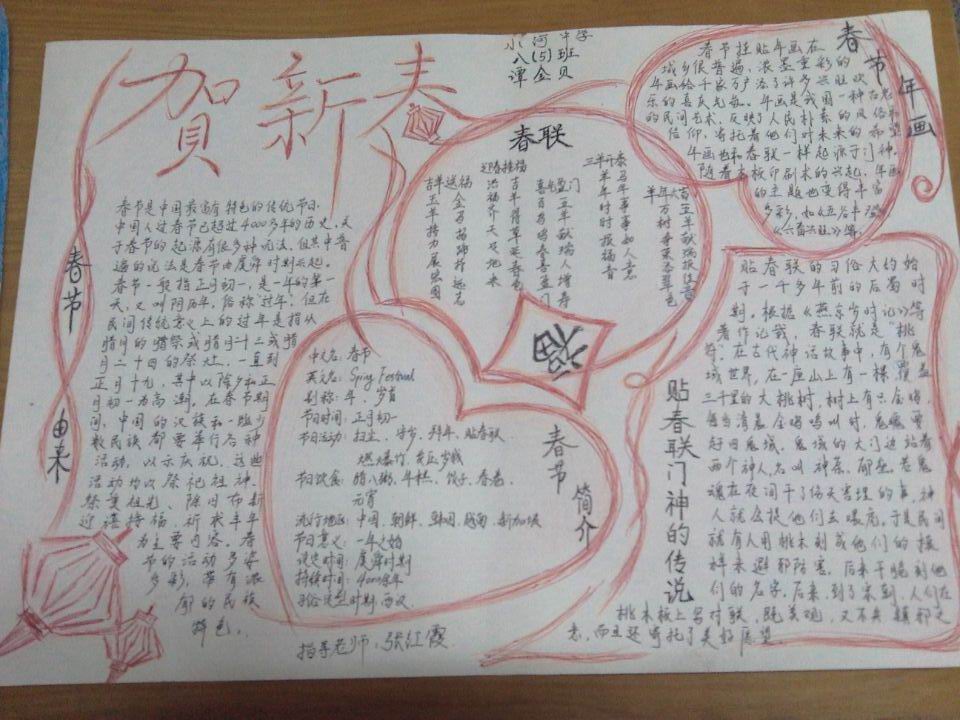 贺新春
小河中学
八(5)班
谭金贝
春节由来
春节是中国最富有特色的传统节日,
中国人过春节已超过4000多年的历史,关
于春节的起源有很多种说法,但其中普
遍的说法是春节由虞舜时期兴起。
春节一般指正月初一,是一年的第一
天,又叫阴历年,俗称"过年"。但在
民间传统意义上的过年是指从
腊月的腊祭或腊月二十三或腊
月二十四的祭灶,一直到
正月十九,其中以除夕和正
月初一为高潮,在春节期
间,中国的汉族和一些少
数民族都要举行各种
活动,以示庆祝。这些
活动均以祭祀祖神、
祭奠祖先、除旧布新
迎禧接福,祈求丰年
为主要内容。春
节的活动多姿
多彩,带有浓
郁的民族
特色。
春联
三羊开泰
马年事事如人意
羊年时时报福音
喜气盈门
迎春接福
洪福齐天及地来
吉羊送福
福
春节简介
中文名:春节
英文名:Spring Festival
别称:年、岁首
节日时间:正月初一
节日活动:扫尘、守岁、拜年、贴春联
燃爆竹、发压岁钱
节日饮食:腊八粥、年糕、饺子、春卷、
元宵
流行地区:中国、朝鲜、韩国、越南、新加坡
节日意义:一年之始
设定时间:虞舜时期
持续时间:4000余年
指导老师:张红霞
春节年画
春节挂贴年画在
城乡很普遍,浓墨重彩的
年画给千家万户添了许多兴旺欢
乐的喜庆气氛。年画是我国一种古老
的民间艺术,反映了人民朴素的风俗和
信仰,寄托着他们对未来的希望。
年画也和春联一样起源于门神。
随着木板印刷术的兴起,年画
的主题也变得丰富
多彩,如《五谷丰登》
《六畜兴旺》等。
贴春联门神的传说
贴春联的习俗大约始
于一千多年前的后蜀时
期。根据《燕京岁时记》等
著作记载,春联就是"桃
符"。在古代神话故事中,有个鬼
域世界,在一座山上有一棵覆盖
三千里的大桃树,树上有只金鸡,
每当清晨金鸡鸣叫时,鬼魂要
赶回鬼域。鬼域的大门边站着
两个神人,名叫神荼、郁垒。若鬼
魂在夜间干了伤天害理的事,神
人就会捉他们去喂虎。于是民间
就有人用桃木刻成他们的模
样来避邪防害。后来干脆刻他
们的名字。后来,到了宋朝,人们在
桃木板上写对联,既美观,又不失镇邪之
意,而且还寄托了美好愿望